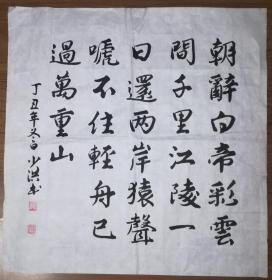 朝辭白帝彩雲
間千里江陵一
日還两岸猿聲
唬不住輕舟已
過萬重山
丁丑年冬日少洪书